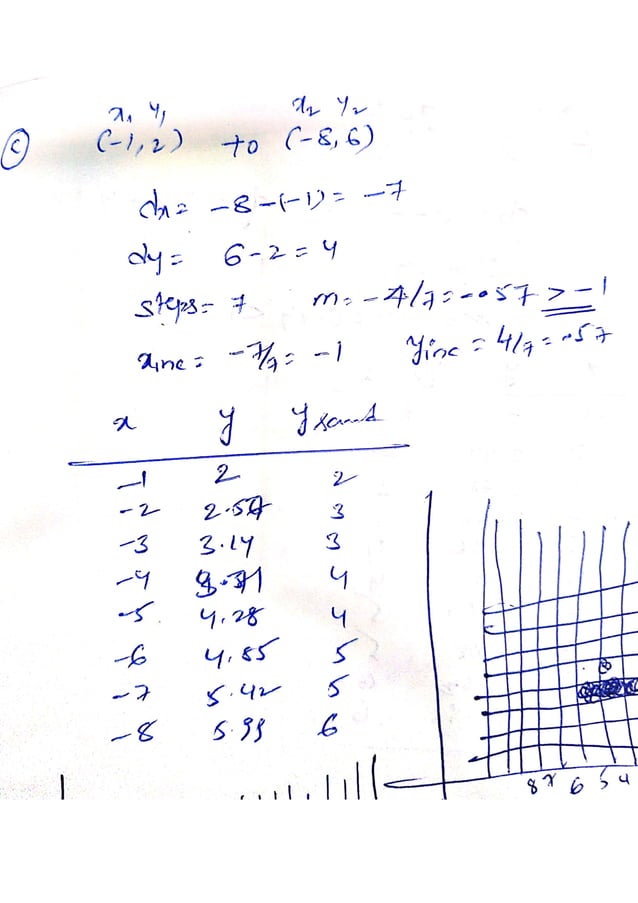 x₁ y₁ x₂ y₂
(c) (-1, 2) to (-8, 6)
dx = -8-(-1) = -7
dy = 6-2 = 4
steps = 7 m = -4/7 = -.57 > -1
xinc = -7/7 = -1 yinc = 4/7 = .57
x y y round
-1 2 2
-2 2.57 3
-3 3.14 3
-4 3.71 4
-5 4.28 4
-6 4.85 5
-7 5.42 5
-8 5.99 6
8 7 6 5 4